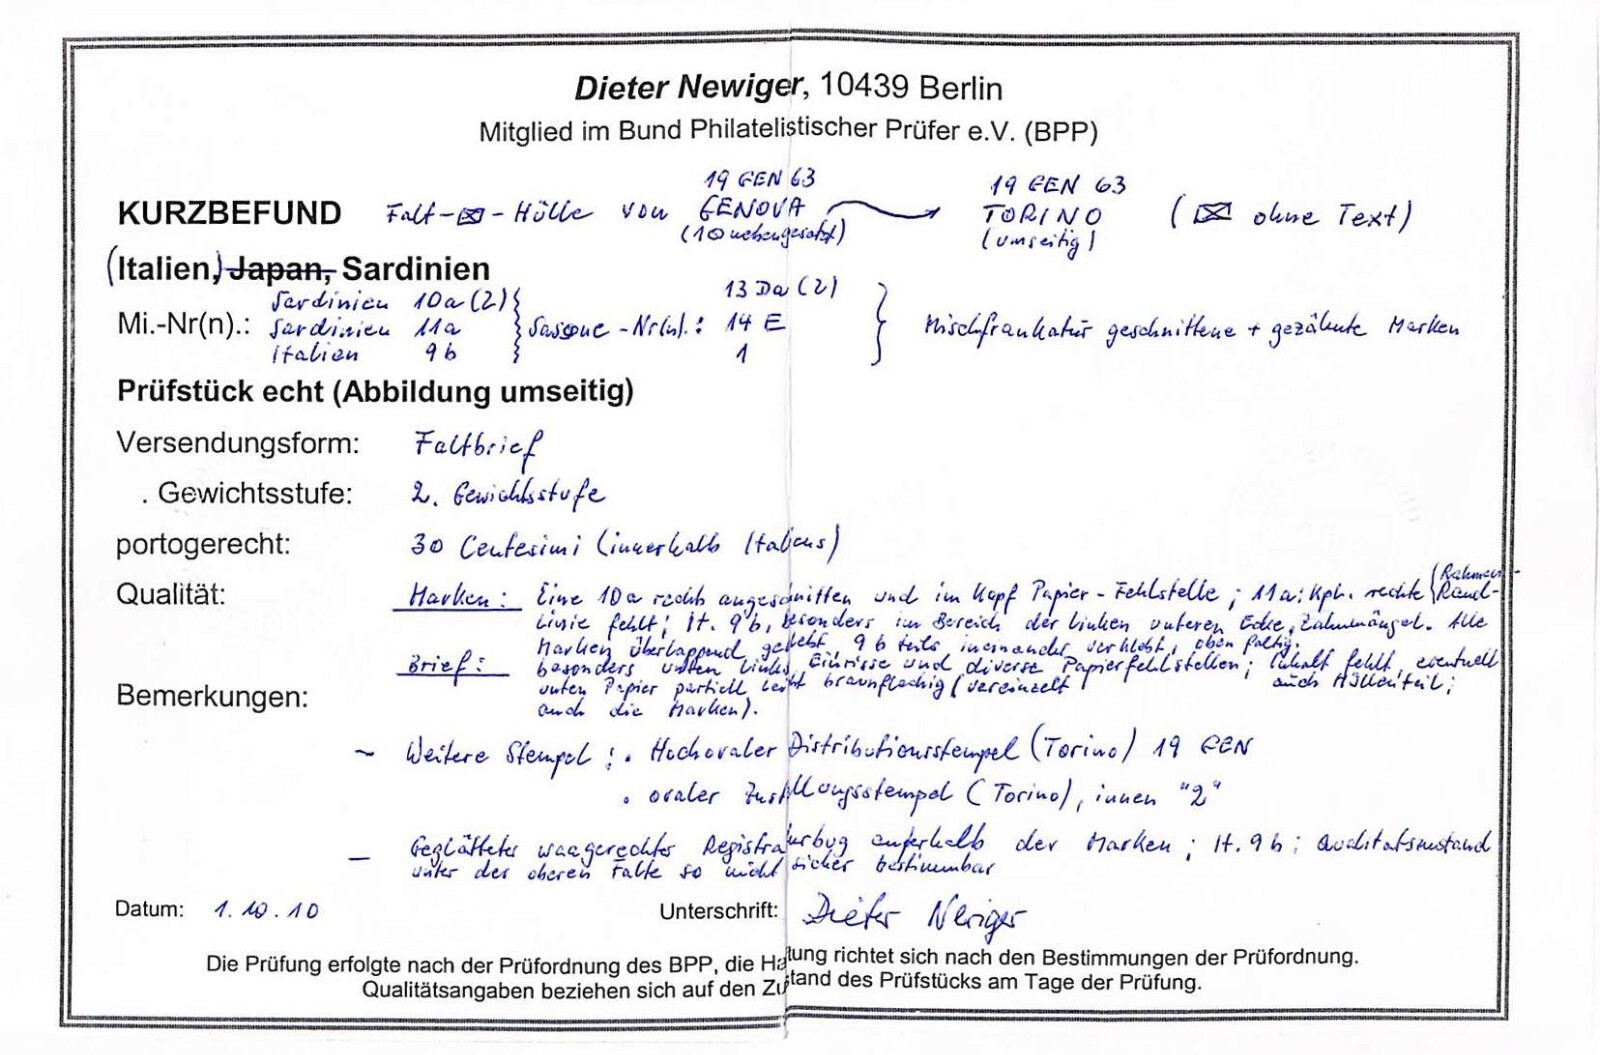 Dieter Newiger, 10439 Berlin
Mitglied im Bund Philatelistischer Prüfer e.V. (BPP)
19 GEN 63 19 GEN 63
KURZBEFUND Falt-✉-Hülle von GENOVA → TORINO (✉ ohne Text)
(1⊙ nebengesetzt) (umseitig)
(Italien,) Japan, Sardinien
Sardinien 10a (2) 13 Da (2)
Mi.-Nr(n).: Sardinien 11a Sassone-Nr(n).: 14 E Mischfrankatur geschnittene + gezähnte Marken
Italien 9b 1
Prüfstück echt (Abbildung umseitig)
Versendungsform: Faltbrief
. Gewichtsstufe: 2. Gewichtsstufe
portogerecht: 30 Centesimi (innerhalb Italiens)
Qualität: Marken: Eine 10a rechts angeschnitten und im Kopf Papier-Fehlstelle; 11a: Kpl. rechte (Rahmen-
Rand-
linie fehlt; It. 9b, besonders im Bereich der linken unteren Ecke, Zahnmängel. Alle
Marken überlappend geklebt, 9b teils ineinander verklebt, oben faltig.
Brief: besonders unten links Einrisse und diverse Papierfehlstellen; Inhalt fehlt, eventuell
auch Hüllenteil;
unten Papier partiell leicht braunfleckig (vereinzelt
auch die Marken).
Bemerkungen:
~ Weitere Stempel: . Hochovaler Distributionsstempel (Torino) 19 GEN
. ovaler Zustellungsstempel (Torino), innen "2"
— Geglätteter waagerechter Registraturbug außerhalb der Marken; It. 9b: Qualitätszustand
unter der oberen Falte so nicht sicher bestimmbar
Datum: 1.10.10 Unterschrift: Dieter Newiger
Die Prüfung erfolgte nach der Prüfordnung des BPP, die Haftung richtet sich nach den Bestimmungen der Prüfordnung.
Qualitätsangaben beziehen sich auf den Zustand des Prüfstücks am Tage der Prüfung.